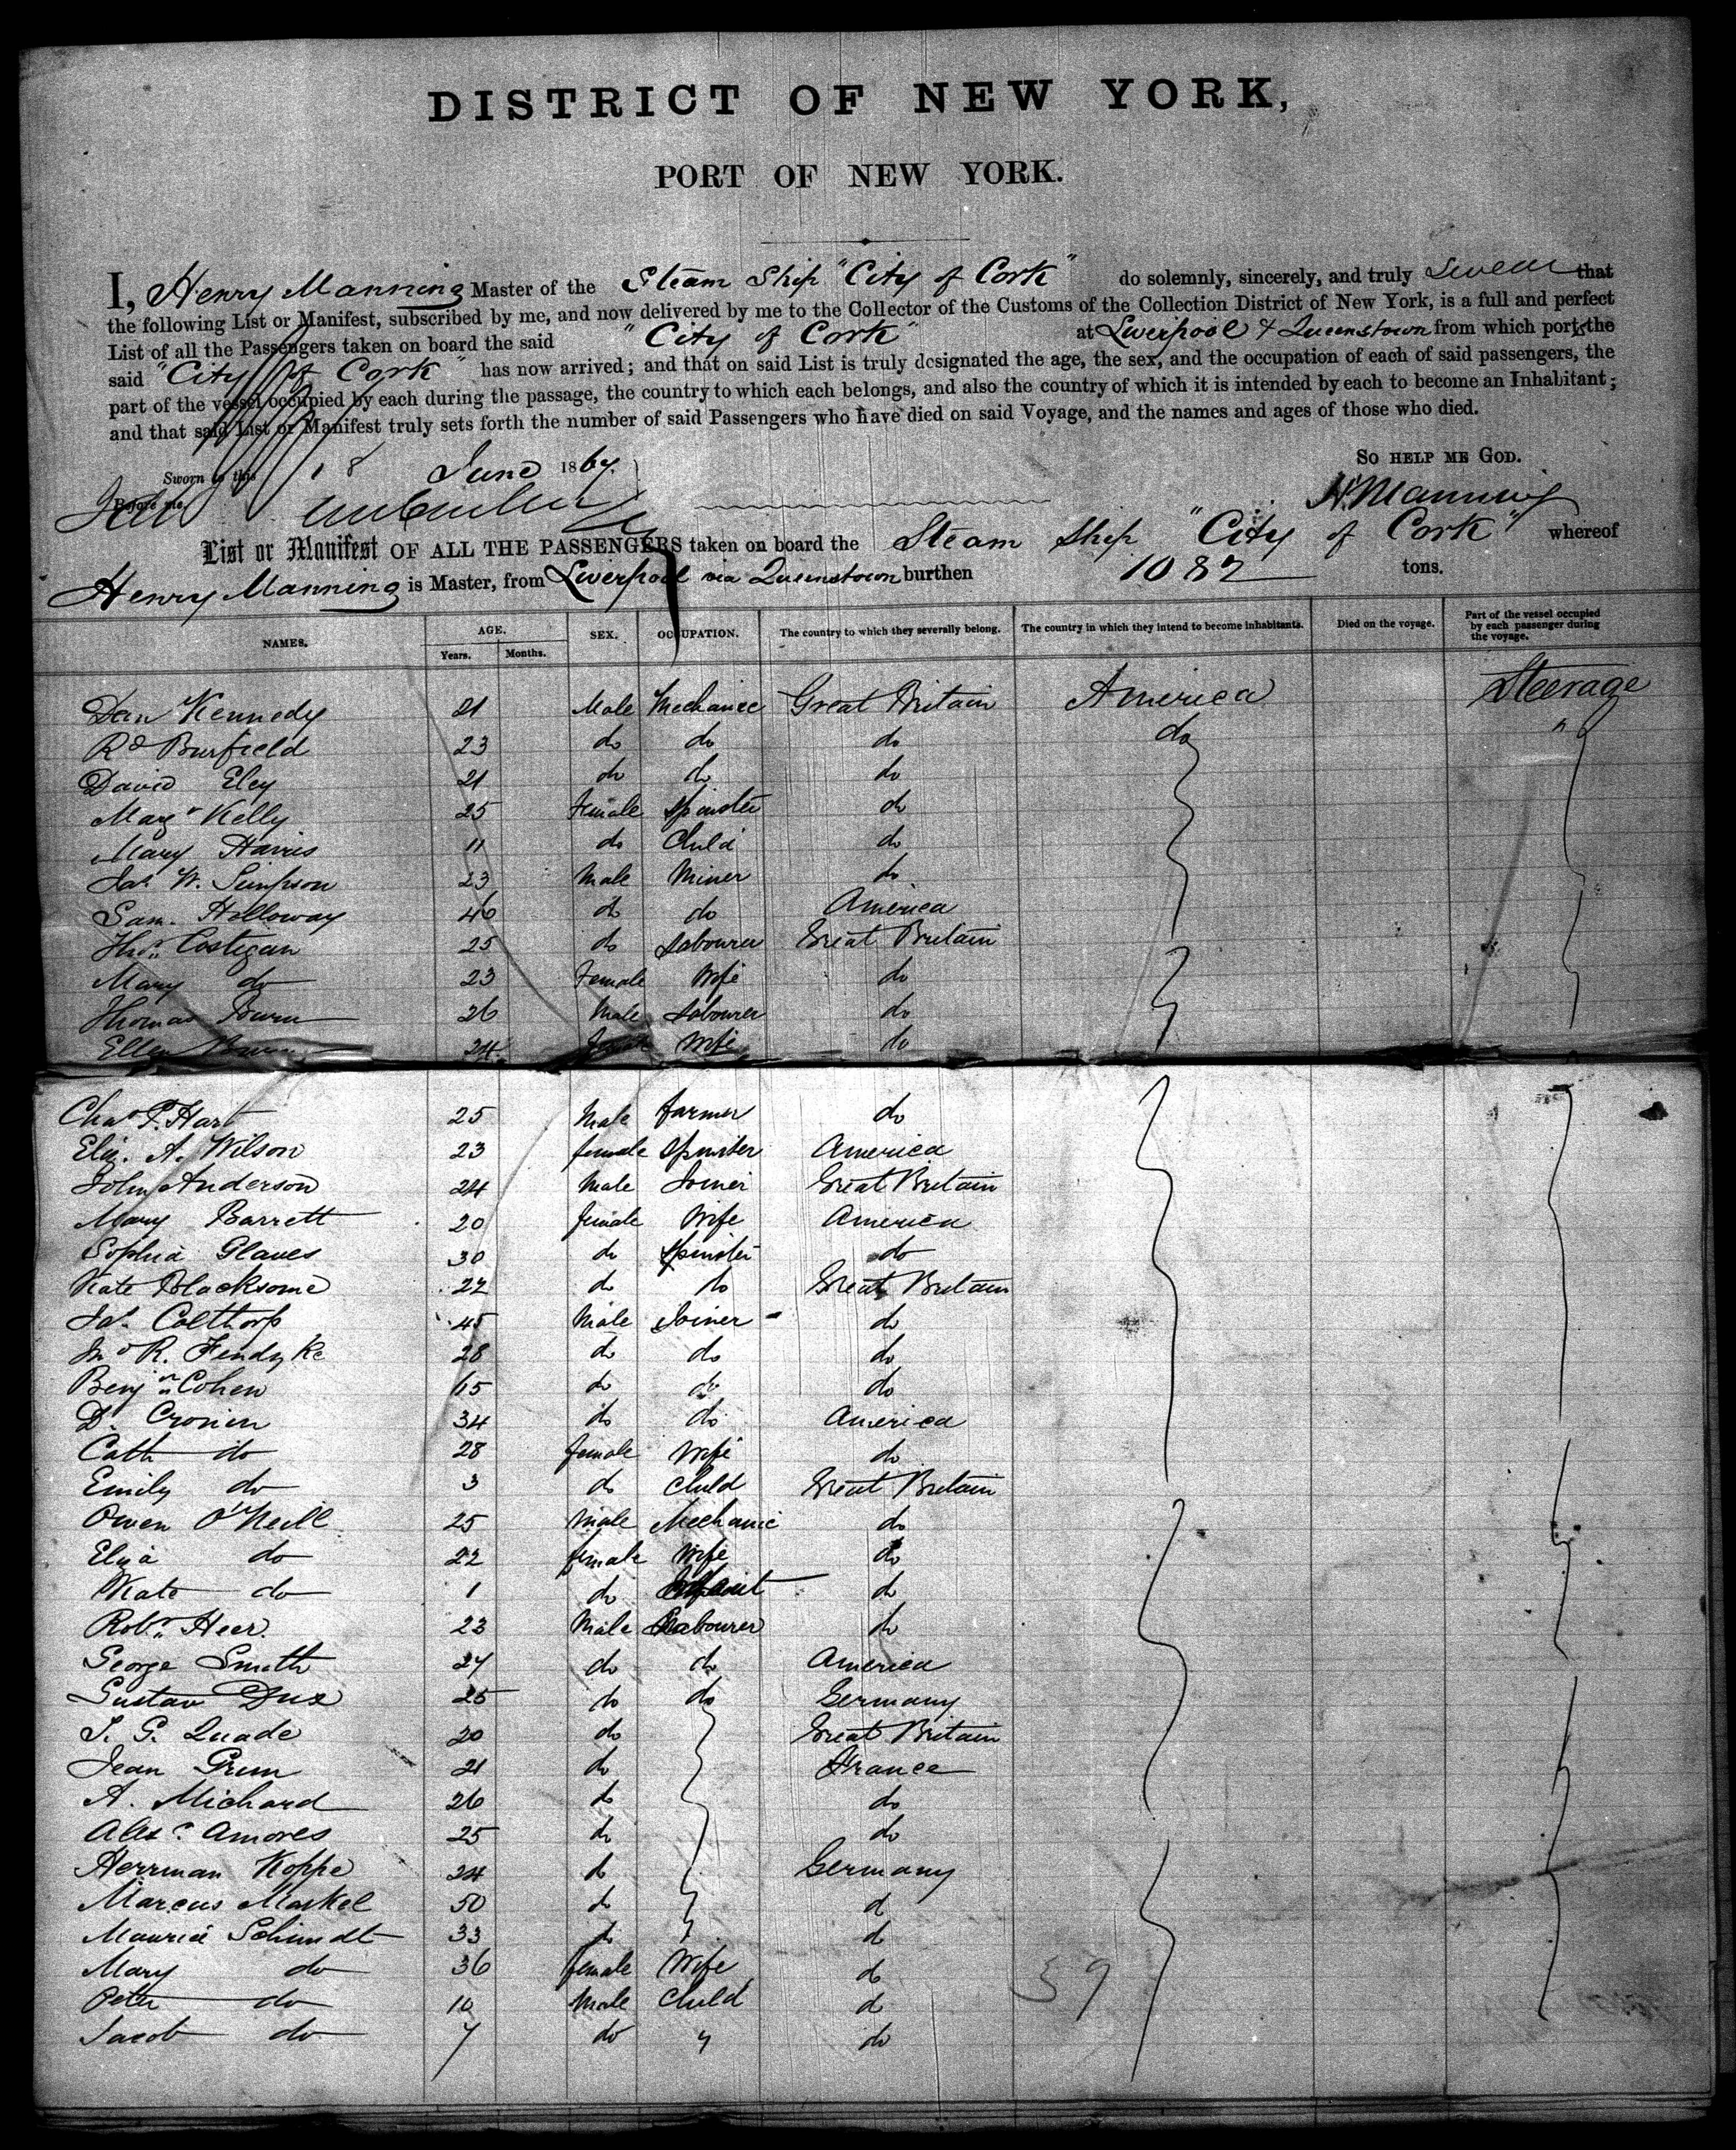 DISTRICT OF NEW YORK,
PORT OF NEW YORK.
I, Henry Manning Master of the Steam Ship "City of Cork" do solemnly, sincerely, and truly Swear that
the following List or Manifest, subscribed by me, and now delivered by me to the Collector of the Customs of the Collection District of New York, is a full and perfect
List of all the Passengers taken on board the said "City of Cork" at Liverpool & Queenstown from which ports the
said "City of Cork" has now arrived; and that on said List is truly designated the age, the sex, and the occupation of each of said passengers, the
part of the vessel occupied by each during the passage, the country to which each belongs, and also the country of which it is intended by each to become an Inhabitant;
and that said List or Manifest truly sets forth the number of said Passengers who have died on said Voyage, and the names and ages of those who died.
SO HELP ME GOD.
Sworn to this 18 June 1867.
Before me H Manning
List or Manifest OF ALL THE PASSENGERS taken on board the Steam Ship "City of Cork" whereof
Henry Manning is Master, from Liverpool via Queenstown burthen 1082 tons.
NAMES. AGE. Years. Months. SEX. OCCUPATION. The country to which they severally belong. The country in which they intend to become inhabitants. Died on the voyage. Part of the vessel occupied by each passenger during the voyage.
Dan Kennedy 21 Male Mechanic Great Britain America Steerage
Rd Burfield 23 do do do do "
David Eley 21 do do do
Margt Kelly 25 Female Spinster do
Mary Harris 11 do Child do
Jas. W. Simpson 23 Male Miner do
Sam. Holloway 46 do do America
Thos. Costigan 25 do Labourer Great Britain
Mary do 23 Female Wife do
Thomas Burn 26 Male Labourer do
Ellen Burn 24 female Wife do
Chas P. Hart 25 Male farmer do
Eliz. A. Wilson 23 female Spinster America
John Anderson 24 Male Joiner Great Britain
Mary Barrett 20 female Wife America
Sophia Glaves 30 do Spinster do
Kate Blacksome 22 do do Great Britain
Jas. Colthorp 45 Male Joiner do
Jno R. Fendyke 28 do do do
Benjn Cohen 65 do do do
D. Cronin 34 do do America
Cath do 28 female Wife do
Emily do 3 do Child Great Britain
Owen O'Neill 25 Male Mechanic do
Eliza do 22 female Wife do
Kate do 1 do Infant do
Robt. Heer. 23 Male Labourer do
George Smith 27 do do America
Gustav Dux 25 do do Germany
T. G. Quade 20 do Great Britain
Jean Grun 21 do France
A. Michard 26 do do
Alex. Amores 25 do do
Herrman Koppe 24 do Germany
Marcus Maskel 50 do d
Maurice Schmidt 33 do d
Mary do 36 female Wife do
Peter do 10 Male Child d
Jacob do 7 do " do
59